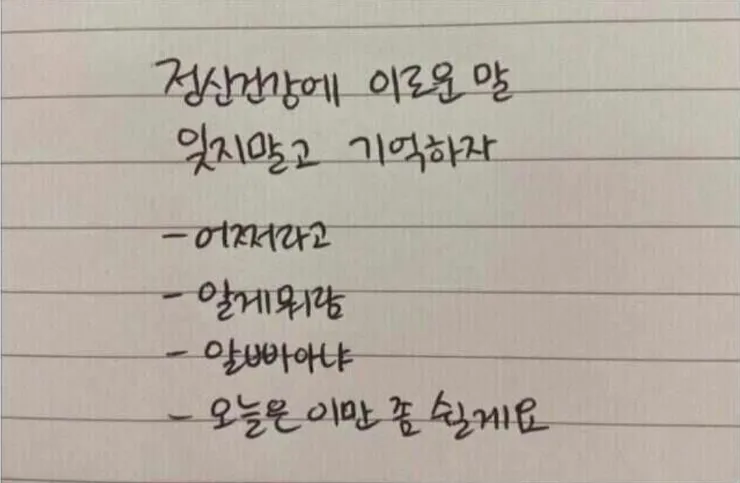 정신건강에 이로운 말
잊지말고 기억하자
- 어쩌라고
- 알게뭐람
- 알빠아냐
- 오늘은 이만 좀 쉴게요